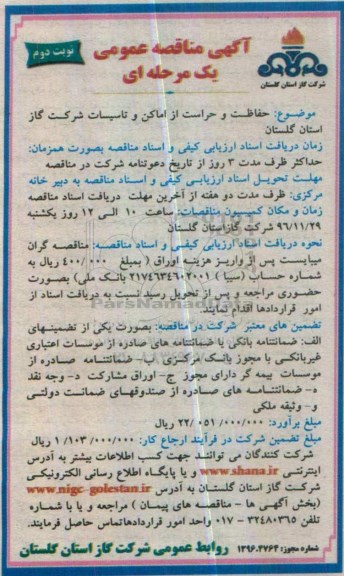 آگهی مناقصه عمومی
یک مرحله ای
نوبت دوم
شرکت گاز استان گلستان
موضوع: حفاظت و حراست از اماکن و تاسیسات شرکت گاز
استان گلستان
زمان دریافت اسناد ارزیابی کیفی و اسناد مناقصه بصورت همزمان:
حداکثر ظرف مدت ۳ روز از تاریخ دعوتنامه شرکت در مناقصه
مهلت تحویل اسناد ارزیابی کیفی و اسناد مناقصه به دبیر خانه
مرکزی: ظرف مدت دو هفته از آخرین مهلت دریافت اسناد مناقصه
زمان و مکان کمسیون مناقصات: ساعت ۱۰ الی ۱۲ روز یکشنبه
۹۶/۱۱/۲۹ شرکت گاز استان گلستان
نحوه دریافت اسناد ارزیابی کیفی و اسناد مناقصه: مناقصه گران
میبایست پس از واریز هزینه اوراق ( بمبلغ ۴۰۰/۰۰۰ ریال به
شماره حساب (سیبا ) ۲۱۷۴۶۳۴۶۰۲۰۰۱ بانک ملی) بصورت
حضوری مراجعه و پس از تحویل رسید نسبت به دریافت اسناد از
امور قراردادها اقدام نمایند.
ParsNamadData
تضمین های معتبر شرکت در مناقصه: بصورت یکی از تضمینهای
الف: ضمانتنامه بانکی یا ضمانتنامه های صادره از موسسات اعتباری
غیربانکی با مجوز بانک مرکزی ب- ضمانتنامه صادره از
موسسات بیمه گر دارای مجوز ج- اوراق مشارکت د- وجه نقد
ه- ضمانتنامه های صادره از صندوقهای ضمانت دولتی
و- وثیقه ملکی
مبلغ برآورد: ۲۲/۰۵۱/۰۰۰/۰۰۰ ریال
مبلغ تضمین شرکت در فرآیند ارجاع کار: ۱/۱۰۳/۰۰۰/۰۰۰ ریال
شرکت کنندگان می توانند جهت کسب اطلاعات بیشتر به آدرس
اینترنتی www.shana.ir و یا پایگاه اطلاع رسانی الکترونیکی
شرکت گاز استان گلستان به آدرس www.nigc-golestan.ir
(بخش آگهی ها - مناقصه های پیمان ) مراجعه و یا با شماره
تلفن ۳۲۴۸۰۳۶۵ - ۰۱۷ واحد امور قراردادها تماس حاصل فرمایند.
شماره مجوز: ۱۳۹۶.۴۷۶۴
روابط عمومی شرکت گاز استان گلستان